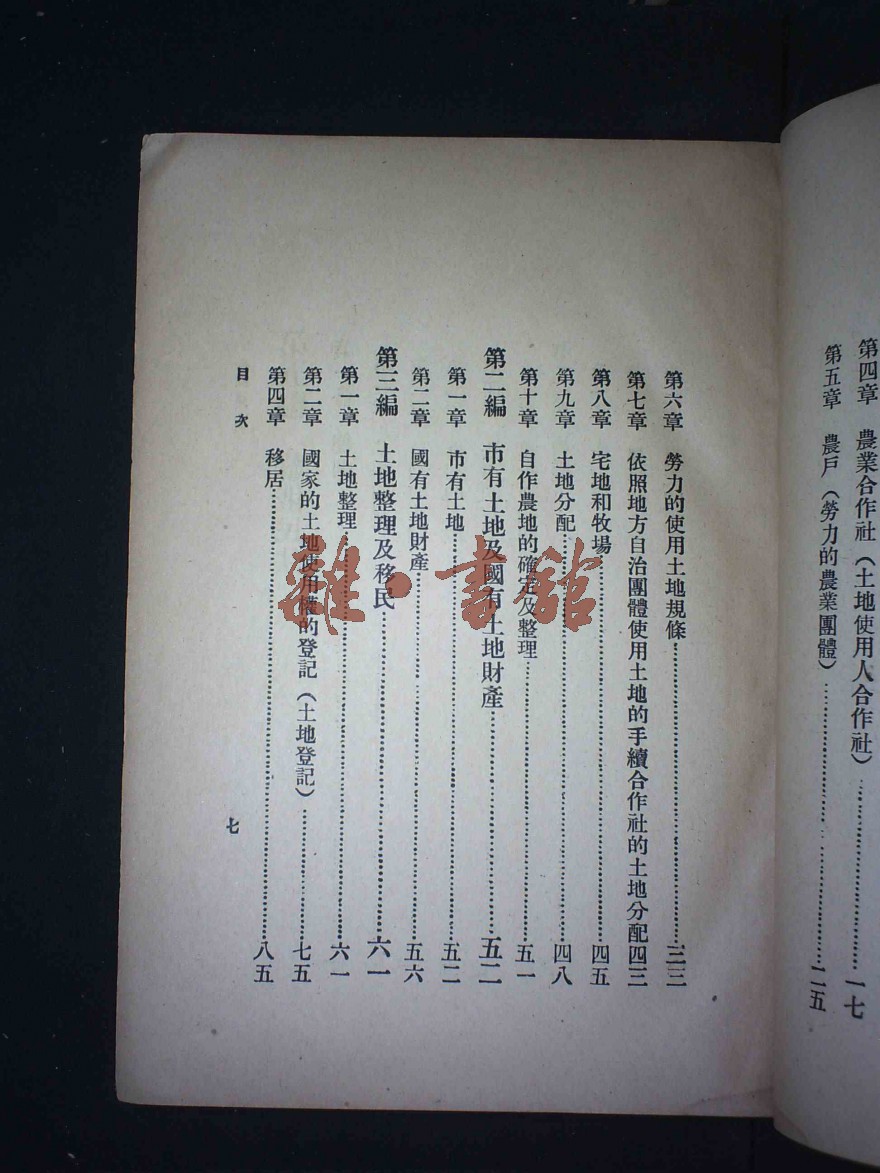 第四章 農業合作社(土地使用人合作社)……一七
第五章 農戶(勞力的農業團體)……二五
第六章 勞力的使用土地規條……三三
第七章 依照地方自治團體使用土地的手續合作社的土地分配四三
第八章 宅地和牧場……四五
第九章 土地分配……四八
第十章 自作農地的確定及整理……五一
第二編 市有土地及國有土地財產……五二
第一章 市有土地……五二
第二章 國有土地財產……五六
第三編 土地整理及移民……六一
第一章 土地整理……六一
第二章 國家的土地使用權的登記(土地登記)……七五
第四章 移居……八五
目次
七
雜·書館